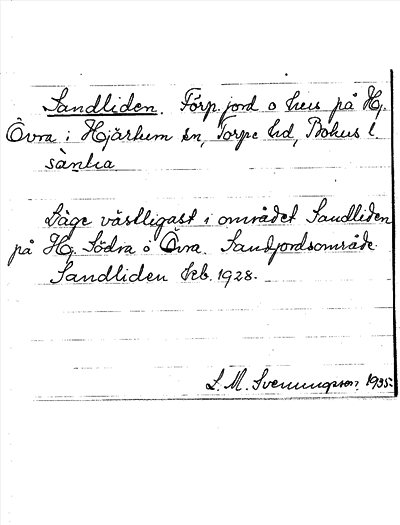 Sandliden. Förp. jord o hus på Hj.
Övra i Hjärtum sn, Torpe hd, Bohus l
sànlia
Läge västligast i området Sandliden
på Hj. Södra o Övra. Sandjordsområde.
Sandliden Ekb. 1928.
L. M. Svenungsson 1935.